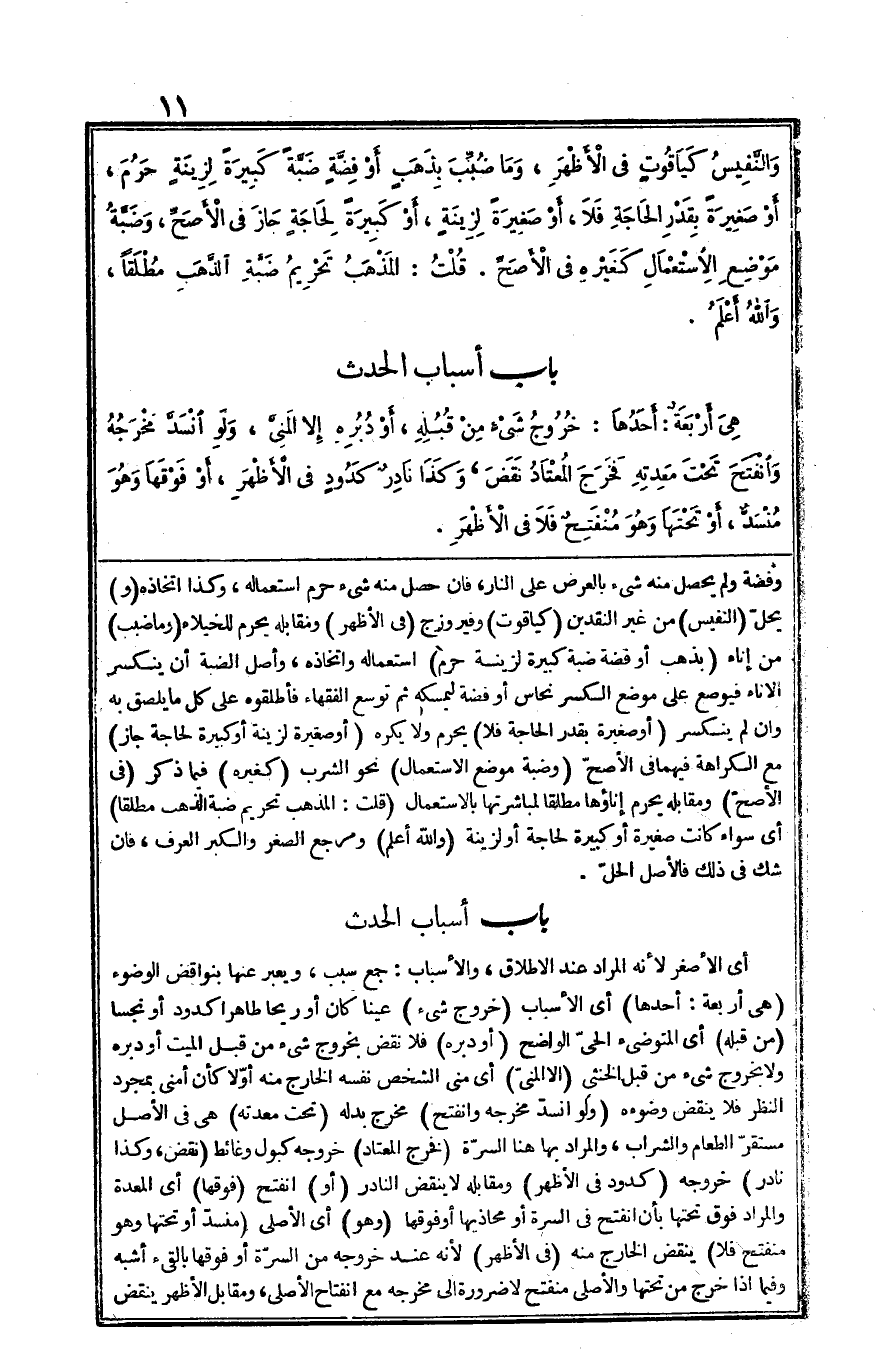 ١١
وَالنَّفِيسُ كَيَاقُوتٍ فى الْأَظْهَرِ ، وَمَا ضُبِّبَ بِذَهَبٍ أَوْ فِضَّةٍ ضَبَّةً كَبِيرَةً لِزِينَةٍ حَرُمَ ،
أَوْ صَغِيرَةً بِقَدْرِ الحَاجَةِ فَلَا ، أَوْ صَغِيرَةً لِزِينَةٍ ، أَوْ كَبِيرَةً لِحَاجَةٍ جَازَ فى الْأَصَحِّ ، وَضَبَّةُ
مَوْضِعِ الِاسْتِعْمَالِ كَغَيْرِهِ فى الْأَصَحِّ . قُلْتُ : المَذْهَبُ تَحْرِيمُ ضَبَّةِ الذَّهَبِ مُطْلَقاً ،
وَاللهُ أَعْلَمُ .
باب أسباب الحدث
هِىَ أَرْبَعَةٌ : أَحَدُهَا : خُرُوجُ شَىْءٍ مِنْ قُبُلِهِ ، أَوْ دُبُرِهِ إِلا المَنِىَّ ، وَلَوِ انْسَدَّ مَخْرَجُهُ
وَانْفَتَحَ تَحْتَ مَعِدَتِهِ فَخَرَجَ المُعْتَادُ نَقَضَ ، وَكَذَا نَادِرٌ كَدُودٍ فى الْأَظْهَرِ ، أَوْ فَوْقَهَا وَهُوَ
مُنْسَدٌّ ، أَوْ تَحْتَهَا وَهُوَ مُنْفَتِحٌ فَلَا فى الْأَظْهَرِ .
وفضة ولم يحصل منه شىء بالعرض على النار، فان حصل منه شىء حرم استعماله ، وكذا اتخاذه (و)
يحلّ (النفيس) من غير النقدين (كياقوت) وفيروزج (فى الأظهر) ومقابله يحرم للخيلاء (وماضبب)
من إناء (بذهب أو فضة ضبة كبيرة لزينة حرم) استعماله واتخاذه ، وأصل الضبة أن ينكسر
الاناء فيوضع على موضع الكسر نحاس أو فضة ليمسكه ثم توسع الفقهاء فأطلقوه على كل مايلصق به
وان لم ينكسر (أوصغيرة بقدر الحاجة فلا) يحرم ولا يكره (أوصغيرة لزينة أوكبيرة لحاجة جاز)
مع الكراهة فيهما فى الأصحّ (وضبة موضع الاستعمال) نحو الشرب (كغيره) فيما ذكر (فى
الأصحّ) ومقابله يحرم إناؤها مطلقا لمباشرتها بالاستعمال (قلت : المذهب تحريم ضبة الذهب مطلقا)
أى سواء كانت صغيرة أوكبيرة لحاجة أولزينة (والله أعلم) ومرجع الصغر والكبر العرف ، فان
شك فى ذلك فالأصل الحلّ .
باب أسباب الحدث
أى الأصغر لأنه المراد عند الاطلاق ، والأسباب : جمع سبب ، ويعبر عنها بنواقض الوضوء
(هى أربعة : أحدها) أى الأسباب (خروج شىء) عينا كان أو ريحا طاهرا كدود أو نجسا
(من قبله) أى المتوضىء الحىّ الواضح (أودبره) فلا نقض بخروج شىء من قبل الميت أودبره
ولابخروج شىء من قبل الخنثى (الا المنىّ) أى منى الشخص نفسه الخارج منه أوّلا كأن أمنى بمجرد
النظر فلا ينقض وضوءه (ولو انسدّ مخرجه وانفتح) مخرج بدله (تحت معدته) هى فى الأصل
مستقرّ الطعام والشراب ، والمراد بها هنا السرّة (فخرج المعتاد) خروجه كبول وغائط (نقض، وكذا
نادر) خروجه (كدود فى الأظهر) ومقابله لاينقض النادر (أو) انفتح (فوقها) أى المعدة
والمراد فوق تحتها بأن انفتح فى السرة أو محاذيها أوفوقها (وهو) أى الأصلى (منسدّ أوتحتها وهو
منفتح فلا) ينقض الخارج منه (فى الأظهر) لأنه عند خروجه من السرّة أو فوقها بالقىء أشبه
وفيما اذا خرج من تحتها والأصلى منفتح لاضرورة الى مخرجه مع انفتاح الأصلى، ومقابل الأظهر ينقض